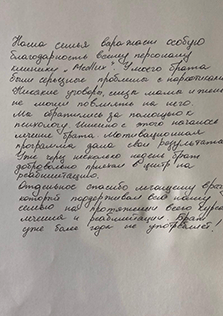 Наша семья выражает особую
благодарность всему персоналу
клиники "Медлик" У моего брата
были серьезные проблемы с наркотиками
Никакие уговоры, слезы мамы и жены
не могли повлиять на него.
Мы обратились за помощью к
психологу именно с этого началось
лечение брата Мотивационная
программа дала свои результаты
Уже через несколько недель брат
добровольно приехал в центр на
реабилитацию.
Отдельное спасибо лечащему врачу
который поддерживал всю нашу
семью на протяжении всего курса
лечения и реабилитации Брат
уже более года не употребляет!